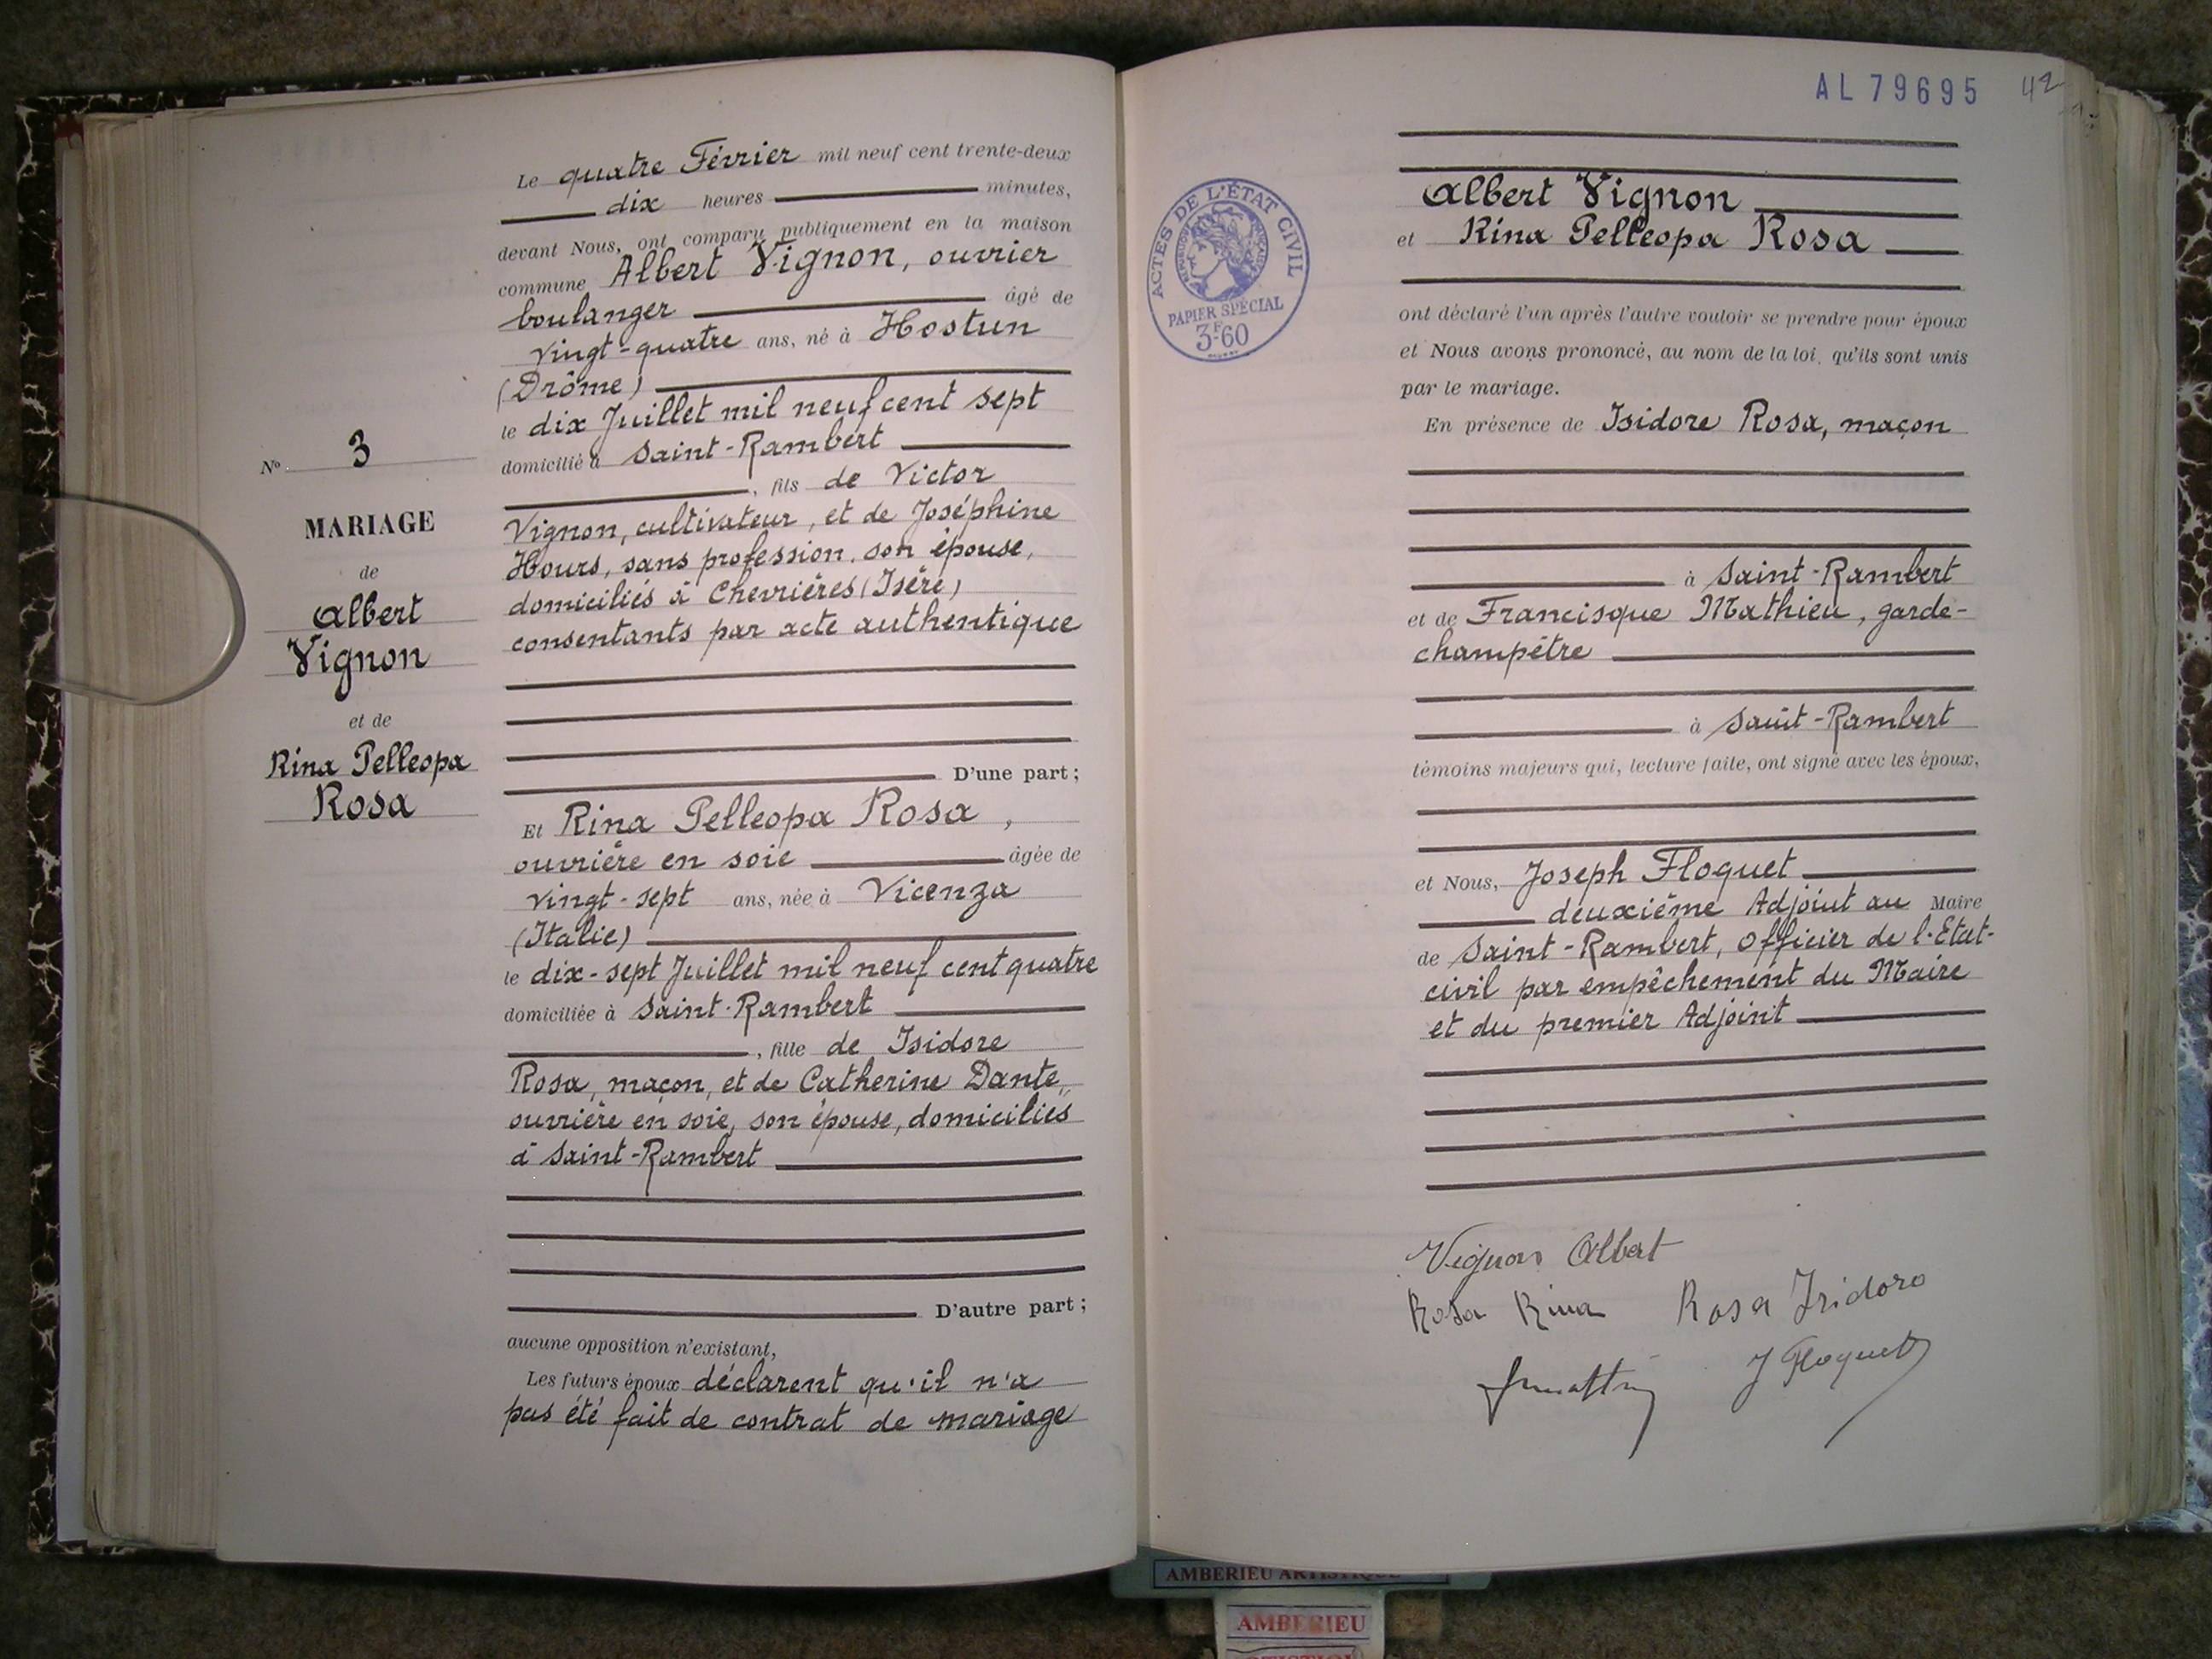 Le quatre Février mil neuf cent trente-deux
dix heures minutes,
devant Nous, ont comparu publiquement en la maison
commune Albert Vignon, ouvrier
boulanger âgé de
vingt-quatre ans, né à Hostun
(Drôme)
le dix Juillet mil neuf cent sept
domicilié à Saint-Rambert
, fils de Victor
Vignon, cultivateur, et de Joséphine
Hours, sans profession, son épouse,
domiciliés à Chevrières (Isère)
consentants par acte authentique
D'une part;
No 3
MARIAGE
de
Albert
Vignon
et de
Rina Pelleopa
Rosa
Et Rina Pelleopa Rosa,
ouvrière en soie âgée de
vingt-sept ans, née à Vicenza
(Italie)
le dix-sept Juillet mil neuf cent quatre
domiciliée à Saint-Rambert
, fille de Isidore
Rosa, maçon, et de Catherine Dante,
ouvrière en soie, son épouse, domiciliés
à Saint-Rambert
D'autre part;
aucune opposition n'existant,
Les futurs époux déclarent qu'il n'a
pas été fait de contrat de mariage
AL 79695 42
ACTES DE L'ÉTAT CIVIL
PAPIER SPÉCIAL
3F60
Albert Vignon
et Rina Pelleopa Rosa
ont déclaré l'un après l'autre vouloir se prendre pour époux
et Nous avons prononcé, au nom de la loi, qu'ils sont unis
par le mariage.
En présence de Isidore Rosa, maçon
à Saint-Rambert
et de Francisque Mathieu, garde-
champêtre
à Saint-Rambert
témoins majeurs qui, lecture faite, ont signé avec les époux,
et Nous, Joseph Floquet
deuxième Adjoint au Maire
de Saint-Rambert, Officier de l'Etat-
civil par empêchement du Maire
et du premier Adjoint
Vignon Albert
Rosa Rina Rosa Isidoro
J Floquet
AMBERIEU ARTISTIQUE
AMBERIEU